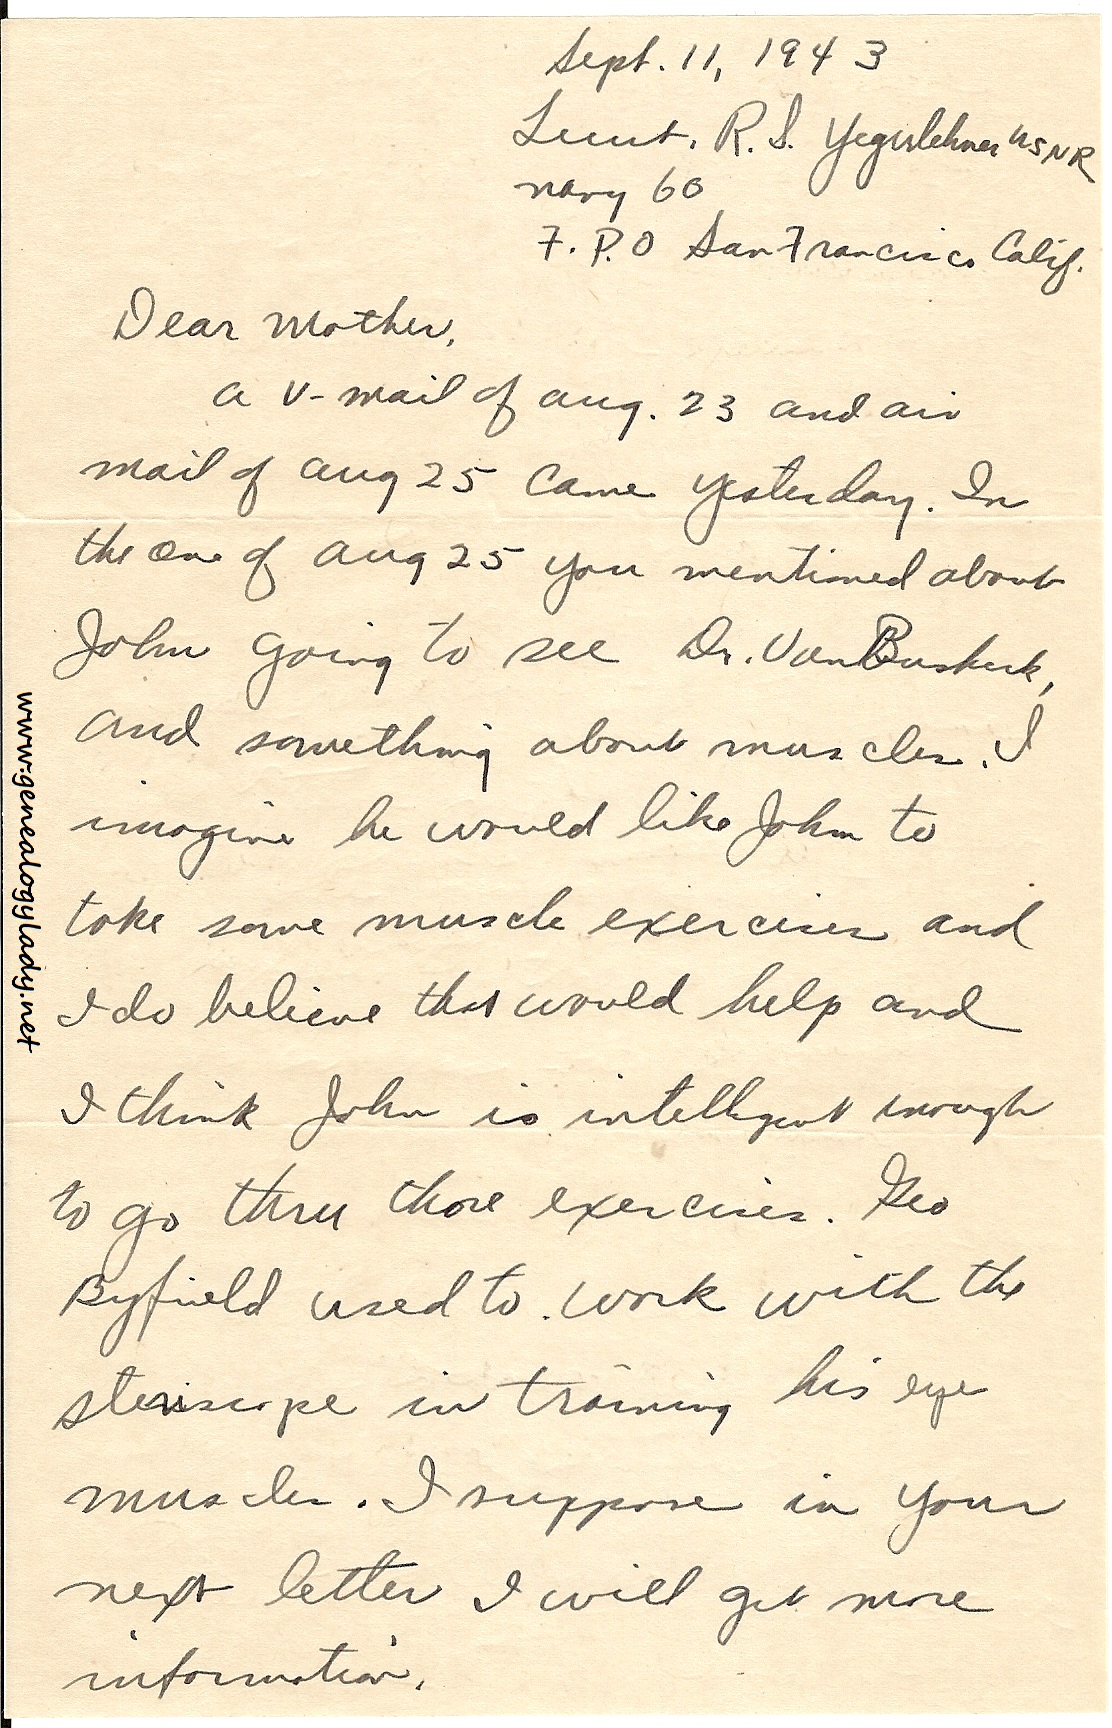 Sept. 11, 1943
Lieut. R. S. Yegerlehner USNR
Navy 60
F. P.O San Francisco Calif.
Dear Mother,
A V-mail of Aug. 23 and air
mail of Aug 25 came yesterday. In
the one of Aug 25 you mentioned about
John going to see Dr. Van Buskirk,
and something about muscles. I
imagine he would like John to
take some muscle exercises and
I do believe that would help and
I think John is intelligent enough
to go thru those exercises. Geo
Byfield used to work with the
steriscope in training his eye
muscles. I suppose in your
next letter I will get more
information.
www.genealogylady.net